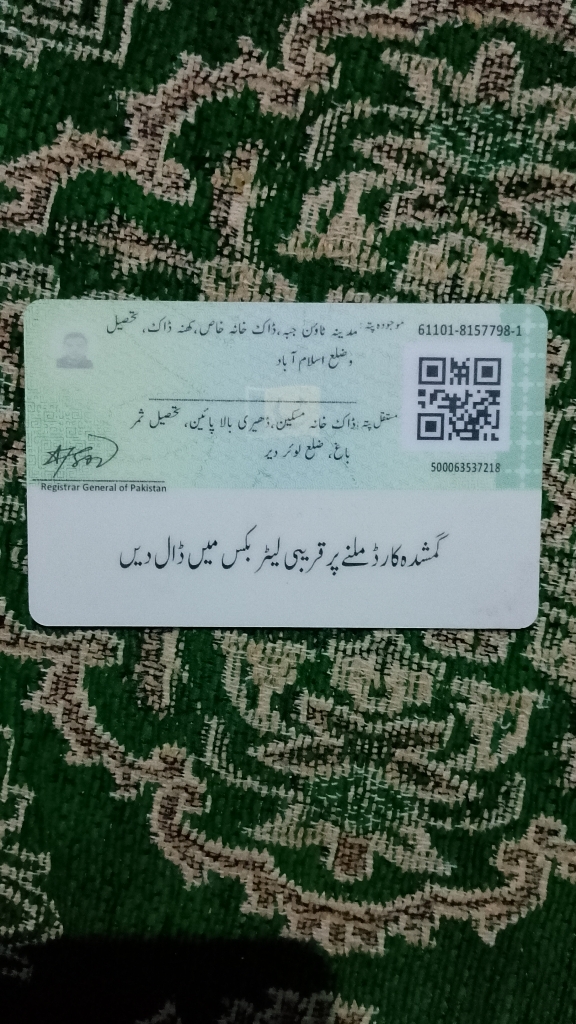 61101-8157798-1
موجودہ پتہ: مدینہ ٹاؤن جبہ، ڈاک خانہ خاص، کھنہ ڈاک، تحصیل
وضلع اسلام آباد
مستقل پتہ: ڈاک خانہ مسکین، ڈھیری بالا پائین، تحصیل ثمر
باغ، ضلع لوئر دیر
500063537218
Registrar General of Pakistan
گمشدہ کارڈ ملنے پر قریبی لیٹر بکس میں ڈال دیں